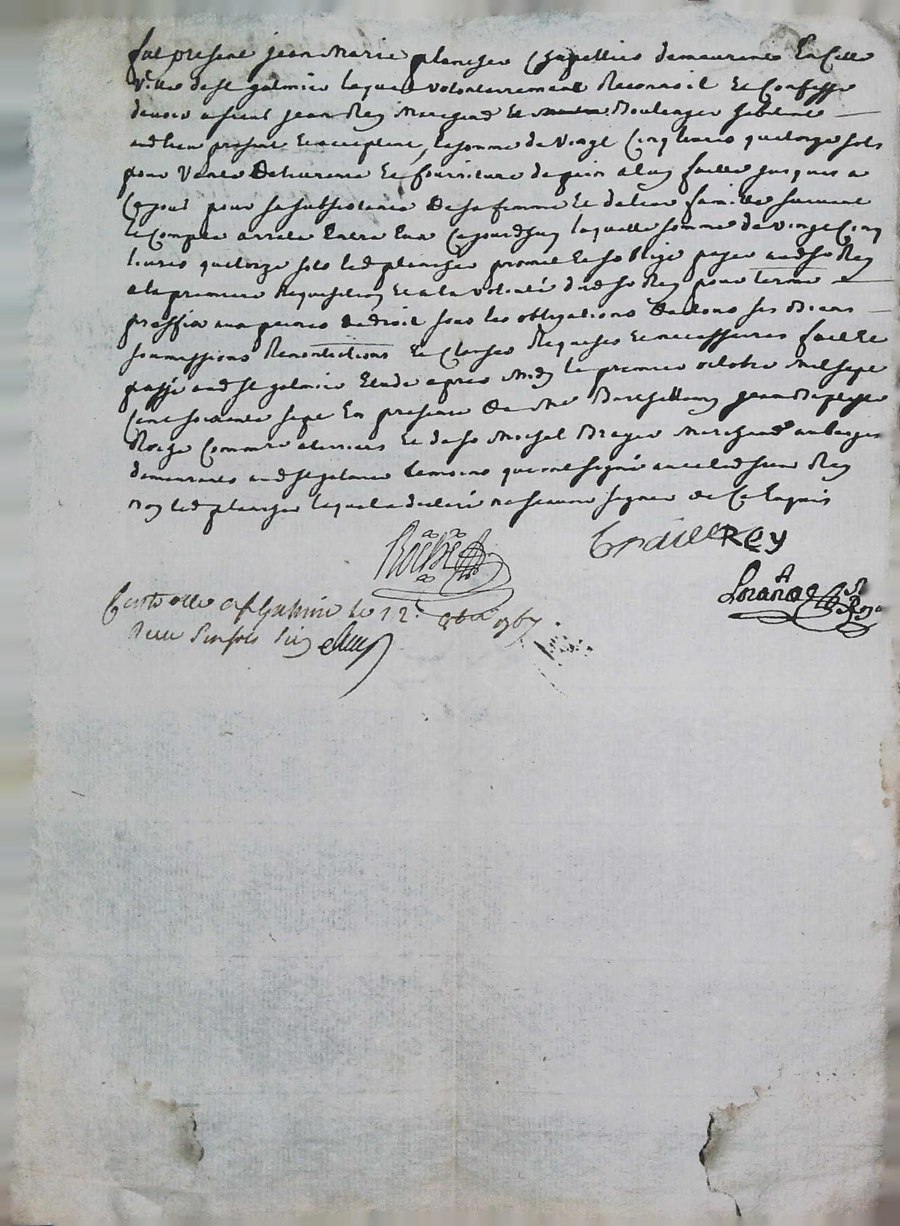 fut present jean Marie plancher Chapellier demeurant En Cette
Ville de st galmier lequel volontairement Reconnoit Et Confesse
devoir a sieur jean Rey Marchand Et Boulanger habitant
aud lieu present Et acceptant, la somme de Vingt Cinq livres quatorze sols
pour Vente Delivrance Et fourniture de pain a luy faitte jusques a
Ce jour pour sa subsistance De sa femme Et de leur famille suivant
le Compte arreté Entre Eux Cejourdhuy laquelle somme de Vingt Cinq
livres quatorze sols led plancher promet Et soblige payer aud sr Rey
a la premiere Requisition Et a la volonté dud sr Rey pour terme
prefix aux peines de droit sous les obligations De tous ses Biens
soumissions Renontiations Et Clauses Requises Et necessaires fait Et
passé aud st galmier Etude apres Midy le premier octobre Mil sept
Cent soixante sept En presence De Me Barthellemy jean Baptiste
Commre a terriers Et de sr Michel Marchand
demeurants aud st galmier temoins qui ont signé avec led sieur Rey
non led plancher lequel a declaré ne scavoir signer de Ce Enquis
REY
Controllé a st Galmier le 12e 8bre 1767
Reçu